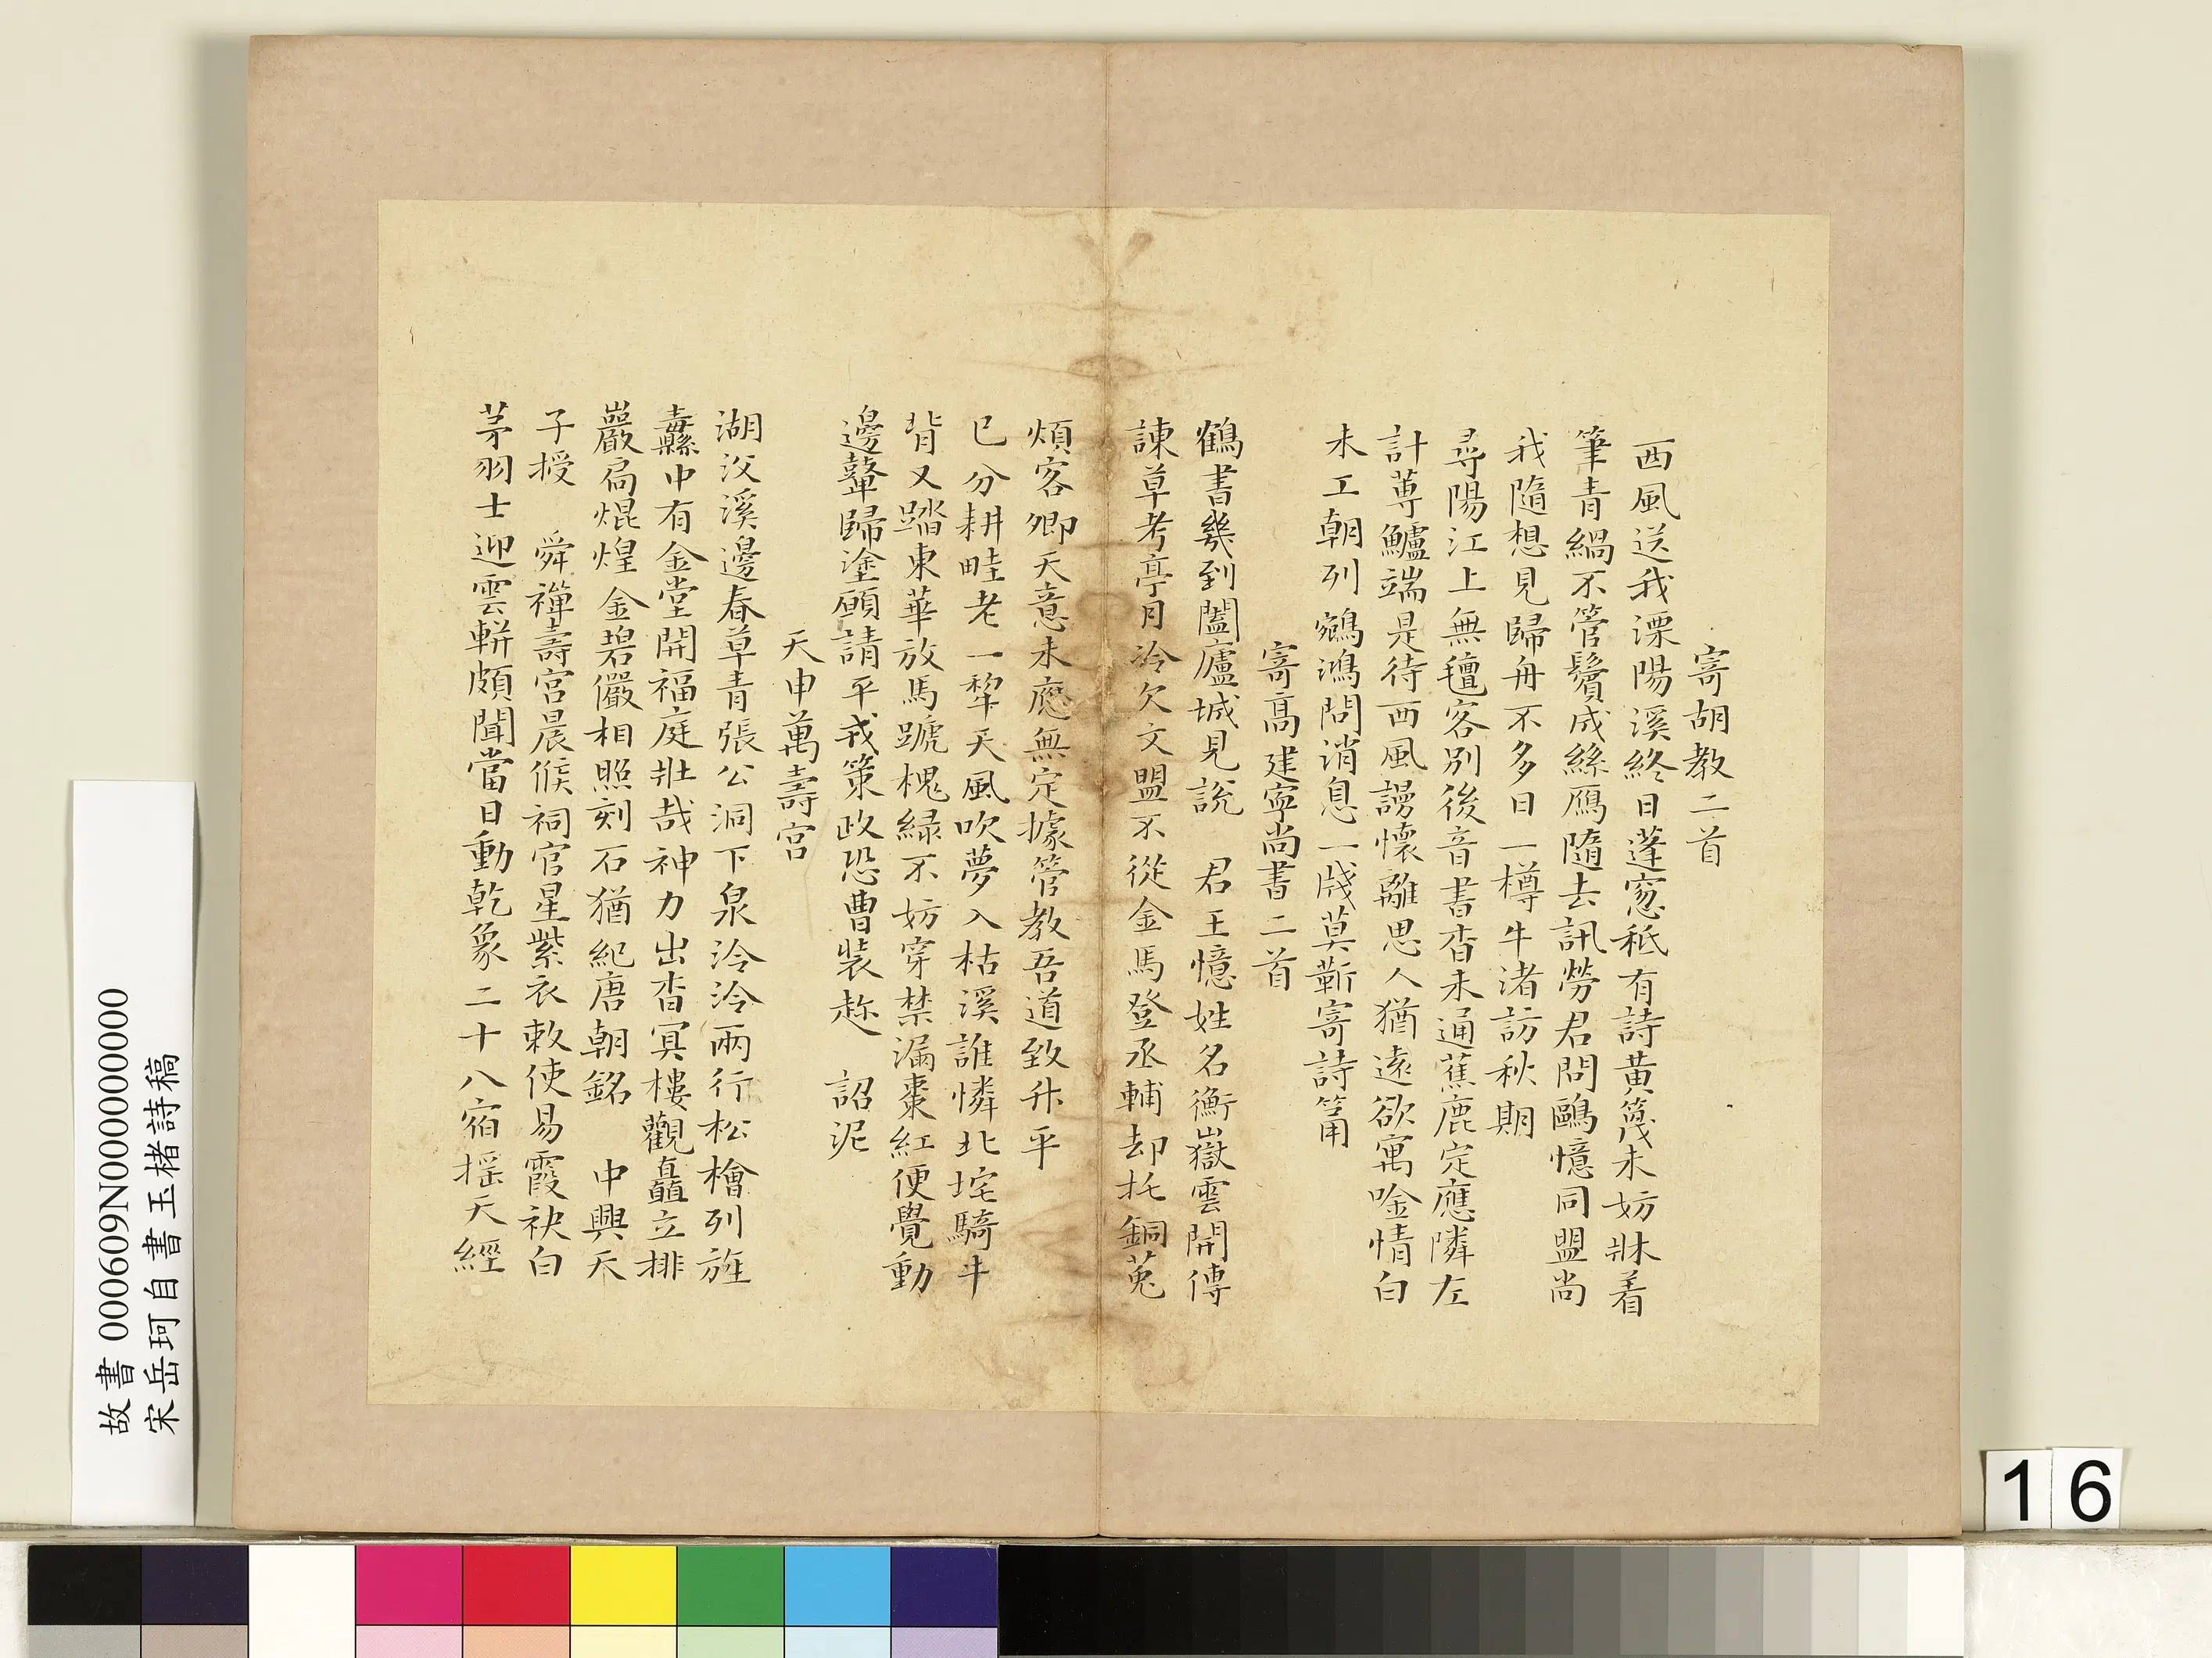 寄胡教二首
西風送我溧陽溪終日蓬窓秪有詩黄篾未妨牀着
筆青緺不管鬢成絲鴈隨去訊勞君問鷗憶同盟尚
我隨想見歸舟不多日一樽牛渚訪秋期
尋陽江上無氊客別後音書杳未通蕉鹿定應隣左
計蓴鱸端是待西風謾懷離思人猶遠欲寓唫情白
未工朝列鵷鴻問消息一牋莫蘄寄詩筩
寄髙建寧尚書二首
鶴書幾到闔廬城見説 君王憶姓名衡嶽雲開傳
諫草考亭月冷欠文盟不從金馬登丞輔却托銅菟
煩客卿天意未應無定據管教吾道致升平
已分耕畦老一犂天風吹夢入枯溪誰憐北垞騎牛
背又踏東華放馬蹏槐緑不妨穿禁漏棗紅便覺動
邊鼙歸塗願請平戎策政恐曹裝趂 詔泥
天申萬壽宫
湖㳇溪邊春草青張公洞下泉泠泠兩行松檜列旌
纛縣中有金堂開福庭壯哉神力出杳冥樓觀矗立排
巖扃焜煌金碧儼相照刻石猶紀唐朝銘 中興天
子授 舜禪壽宫晨候祠官星紫衣敕使易霞袂白
茅羽士迎雲軿頗聞當日動乾象二十八宿揺天經
故書 000609N000000000
宋岳珂自書玉楮詩稿
16